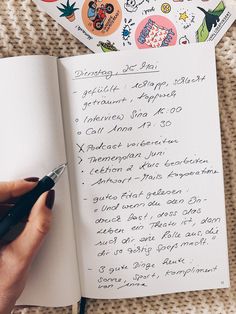 Dienstag, 25. Mai
- gefühlt: schlapp, schlecht
geträumt, Kopfweh
o Interview Sina 15:00
o Call Anna 17:30
x Podcast vorbereiten
x Themenplan Juni
- Lektion 2 Kurs bearbeiten
- Antwort-Mails Kooperation
- gutes Zitat gelesen:
"Und wenn du den Ein-
druck hast, dass das
Leben ein Theater ist, dann
such dir eine Rolle aus, die
dir so richtig Spaß macht."
- 3 gute Dinge heute:
Sonne, Sport, Kompliment
von Anna